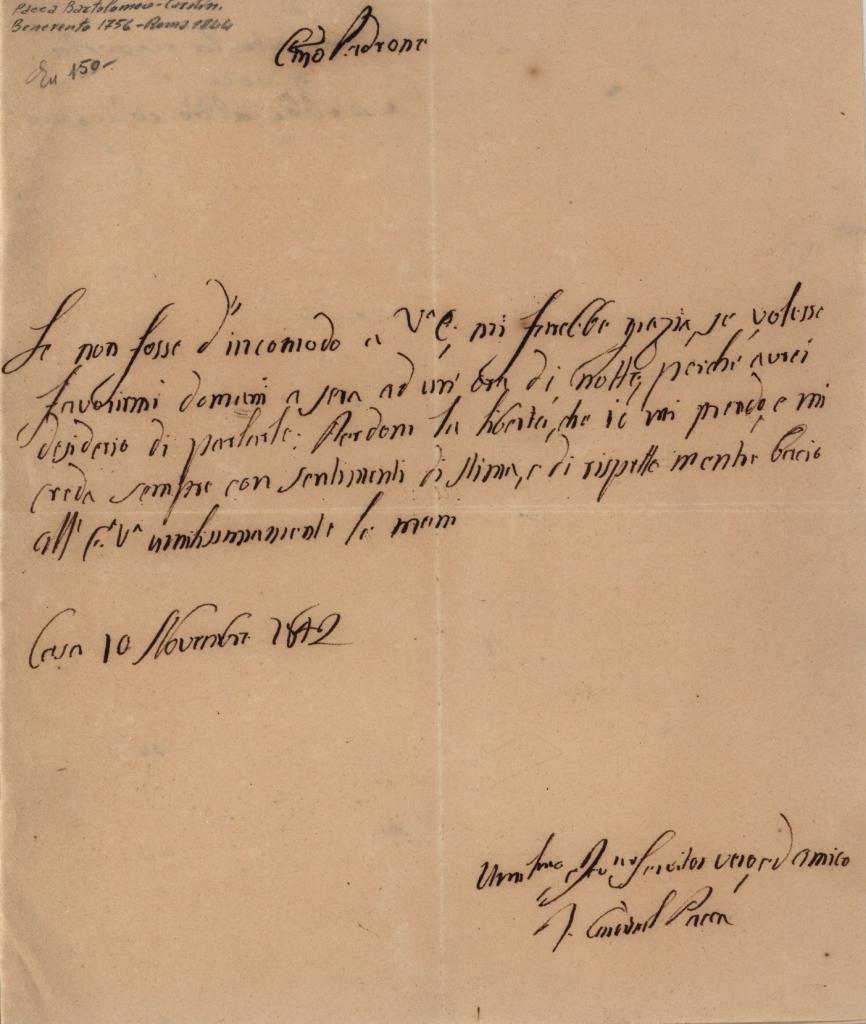 Pacca Bartolomeo - Cardin.
Benevento 1756 - Roma 1844
150-
E͞mo Padrone
Se non fosse d'incomodo a Vª E. mi farebbe grazia, se volesse
favorirmi domani a sera ad un' ora di notte, perchè avrei
desiderio di parlarle. Perdoni la libertà, che io mi prendo, e mi
creda sempre con sentimenti di stima, e di rispetto mentre bacio
all' E. Vª umilissimamente le mani
Casa 10 Novembre 1842
Umilmo e Devmo Servitor vero, ed amico
Pacca